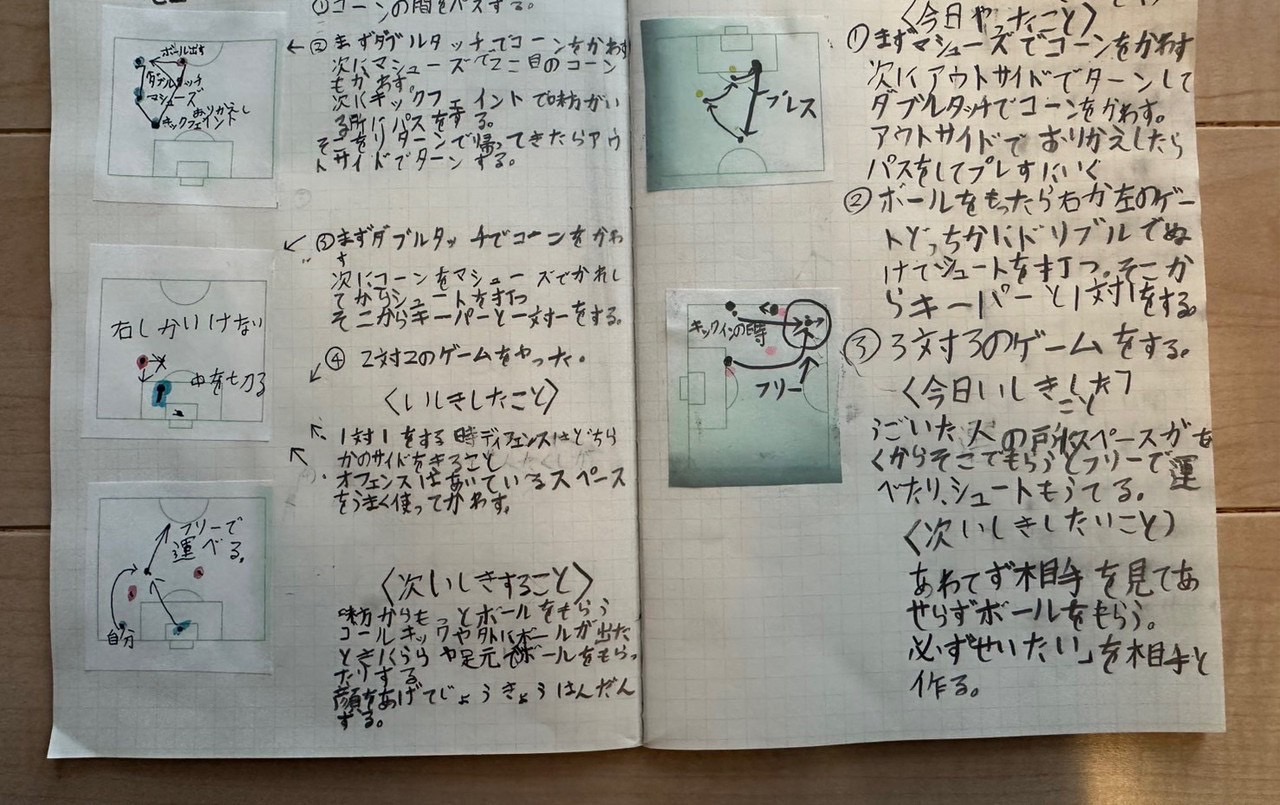 ①コーンの間をパスする。
② まずダブルタッチでコーンをかわす
次にマシューズで2こ目のコーン
もかわす。
次にキックフェイントで味方がい
る所にパスをする。
そこをリターンで帰ってきたらアウ
トサイドでターンする。
③まずダブルタッチでコーンをかわ
す
次にコーンをマシューズでかわし
てからシュートを打つ
そこからキーパーと一対一をする。
④ 2対2のゲームをやった。
〈いしきしたこと〉
・1対1をする時ディフェンスはどちら
かのサイドをきること
・オフェンスはあいているスペース
をうまく使ってかわす。
〈次いしきすること〉
味方からもっとボールをもらう
コールキックや外にボールが出た
ときにうらや足元でボールをもらっ
たりする
顔をあげてじょうきょうはんだん
する。
ボール出す
ダブルタッチ
マシューズ
おりかえし
キックフェイント
右しかいけない
中を切る
フリーで
運べる。
自分
〈今日やったこと〉
①まずマシューズでコーンをかわす
次にアウトサイドでターンして
ダブルタッチでコーンをかわす。
アウトサイドでおりかえしたら
パスをしてプレすにいく
② ボールをもったら右か左のゲー
トどっちかにドリブルでぬ
けてシュートを打つ。そこか
らキーパーと1対1をする。
③ 3対3のゲームをする。
〈今日いしきした
こと〉
うごいた人の スペースがあ
くからそこでもらうとフリーで運
べたり、シュートもうてる。
〈次いしきしたいこと〉
あわてず相手を見てあ
せらずボールをもらう。
必ず「せいたい」を相手と
作る。
プレス
キックインの時
フリー